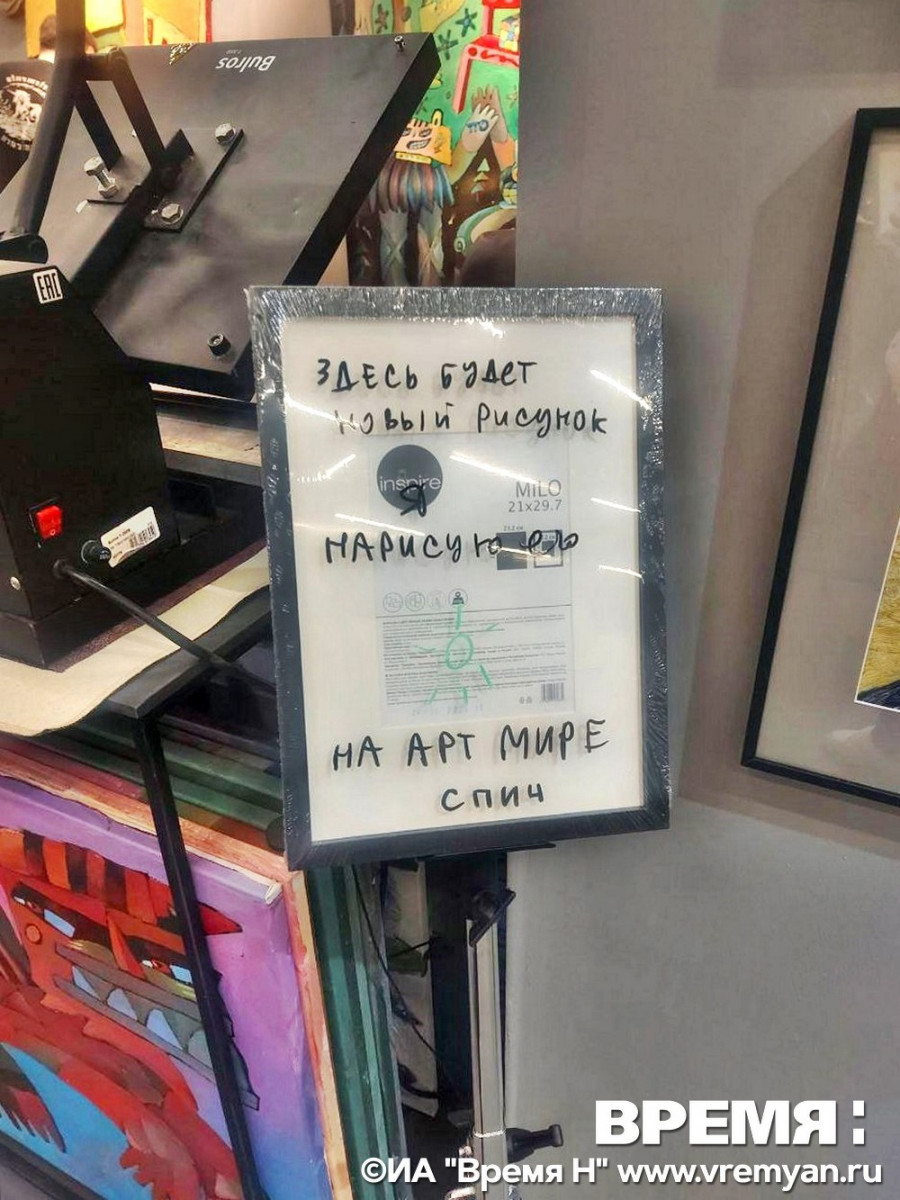 Bulros
EAC
ЗДЕСЬ БУДЕТ
НОВЫЙ РИСУНОК
inspire
MILO
21x29.7
Я
НАРИСУЮ ЕГО
НА АРТ МИРЕ
СПИЧ
ВРЕМЯ:
©ИА "Время Н" www.vremyan.ru